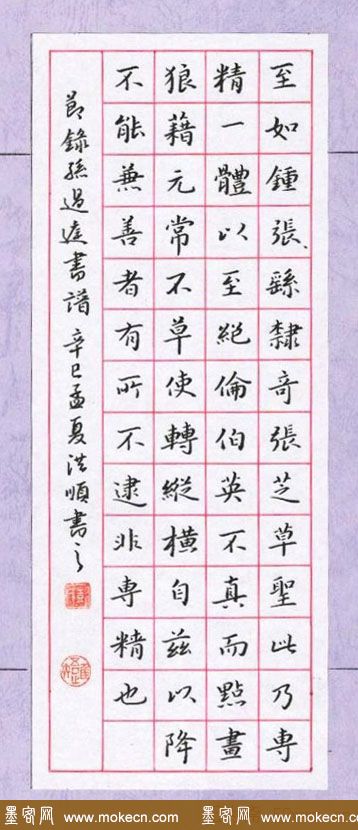 至如鍾張、繇隸奇張芝草聖此乃專
精一體以至絕倫伯英不真而點畫
狼藉元常不草使轉縱橫自茲以降
不能兼善者有所不逮非專精也
節錄孫過庭書譜 辛巳孟夏洪順書之
墨客网 www.mokecn.com 墨客网 www.mokecn.com